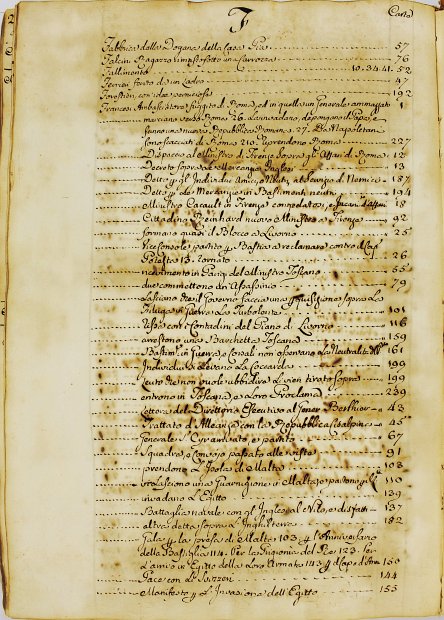 F
Carta
Fabbrica della Dogana della Casa Pia 57
Falcini Ragazzo in una Carrozza 76
Fallimento 10. 34. 41. 52
Ferrari ferito da un Ladro 47
Forestieri, con idee perniciose 192
Francesi Ambasciatore fuggito di Roma, ed in quella un Generale ammazzato 1
marciano verso Roma 26. depongono il Papa, e
fanno una nuova Repubblica Romana 27. Da Napoletani
sono scacciati di Roma 210. riprendono Roma 227
Dispaccio al Ministro di Firenze sopra gl'Affari di Roma 12
Decreto sopra le Mercanzie Inglesi 13
Detto p gl'Individui amici, o Neutri al servizio de Nemici 187
Detto p le Mercanzie in Bastimenti neutri 194
Ministro Cacault in Firenze congedatosi, e Incari d'Affari 18
Cittadino Reinhard nuovo Ministro a Firenze 92
formano quasi il Blocco a Livorno 25
Viceconsole partito p Bastia a reclamare contro
13. tornato 26
in Parigi del Ministro Toscano 55
due commettono un Assassinio 79
Lasciano che il Governo faccia una sopra La
in 101
Rissa con i Contadini del Piano di Livorno 116
arrestono una Barchetta Toscana 159
Bastim di Guerra, o Corsali non osservano La Neutralità 161
Individui si Levano La Coccarda 199
Leuto che non vuole ubbidire Li vien tirato sopra 199
entrono in Toscana, e Loro Proclama 239
Lettera del Direttorio Esecutivo al Gener Berthier 43
Trattato di Alleanza con la Repubblica Cisalpina 45
Generale S. Cyr arrivato, e partito 67
Squadra, e Convojo passato alle viste 91
prendono L'Isola di Malta 103
Lasciono una Guarnigione in Malta, e partono 110
invadano L'Egitto 139
Battaglia navale con gl'Inglesi al Nilo, e disfatti 137
altra detta sopra L'Inghilterra 182
Gala p la presa di Malta 103. p l'Anniversario
della Bastiglia 114. Per la prigionia del Re 123. Per
L'arrivo in Egitto della Loro Armata 143 150
Pace con Li Svizzeri 144
Manifesto p L'Invasione dell'Egitto 155